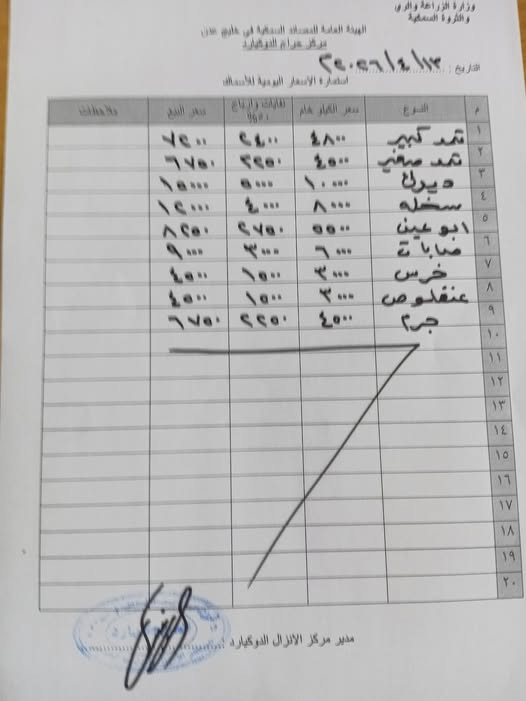 وزارة الزراعة والري
والثروة السمكية
الهيئة العامة للمصائد السمكية في خليج عدن
مركز حراج الدوكيارد
التاريخ : ١٣/٤/٢٠٢٦م
استمارة الاسعار اليومية للأسماك
م النوع سعر الكيلو خام نفايات وارباح ٥٠% سعر البيع ملاحظات
١ ثمد كبير ٤٨٠٠ ٢٤٠٠ ٧٢٠٠
٢ ثمد صغير ٤٥٠٠ ٢٢٥٠ ٦٧٥٠
٣ ديرك ١٠٠٠٠ ٥٠٠٠ ١٥٠٠٠
٤ سخله ٨٠٠٠ ٤٠٠٠ ١٢٠٠٠
٥ ابو عين ٥٥٠٠ ٢٧٥٠ ٨٢٥٠
٦ ٦٠٠٠ ٣٠٠٠ ٩٠٠٠
٧ خرس ٣٠٠٠ ١٥٠٠ ٤٥٠٠
٨ عنفلوص ٣٠٠٠ ١٥٠٠ ٤٥٠٠
٩ جرم ٤٥٠٠ ٢٢٥٠ ٦٧٥٠
١٠
١١
١٢
١٣
١٤
١٥
١٦
١٧
١٨
١٩
٢٠
مدير مركز الانزال الدوكيارد :